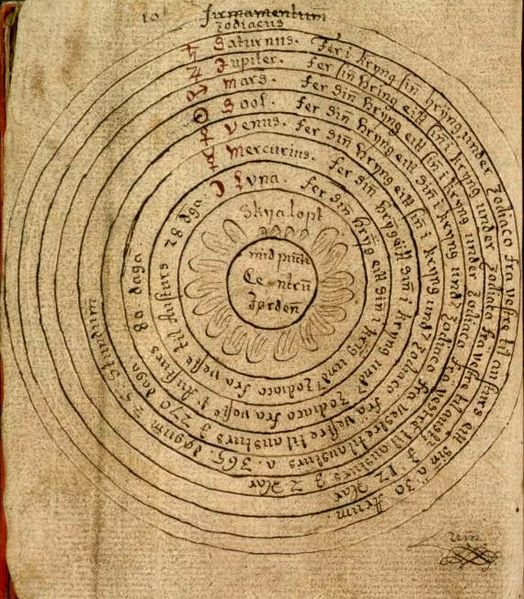 10
firmamentum
zodiacus
♄ Saturnus. Fer i kryng sin hryng under Zodiaco fra vestre til austurs eitt sin a 30 Arum.
♃ Jupiter. fer sin hring eitt sin i kryng under Zodiaco fra vestre til austurs 12 Aar
♂ Mars. fer sin hryg eitt sin i kryng under Zodiaco fra vestre til austurs 2 Aar
☉ Sool. fer sin kryng eitt sin i kryng und Zodiaco fra vestre til austurs a. 365. dagum 5 Stundum
♀ Venus. fer sin kryng eitt sin i kryng und Zodiaco fra vestre til austurs 270 daga.
☿ Mercurius. fer sin kryng eitt sin i kryng und Zodiaco fra vestre Austurs 80 daga
☽ Lvna. fer sin hring eitt sin i kring und Zodiaco fra vestre til Austurs 28 dga.
Skyalopt
mid punct
Centru
Jorden
um